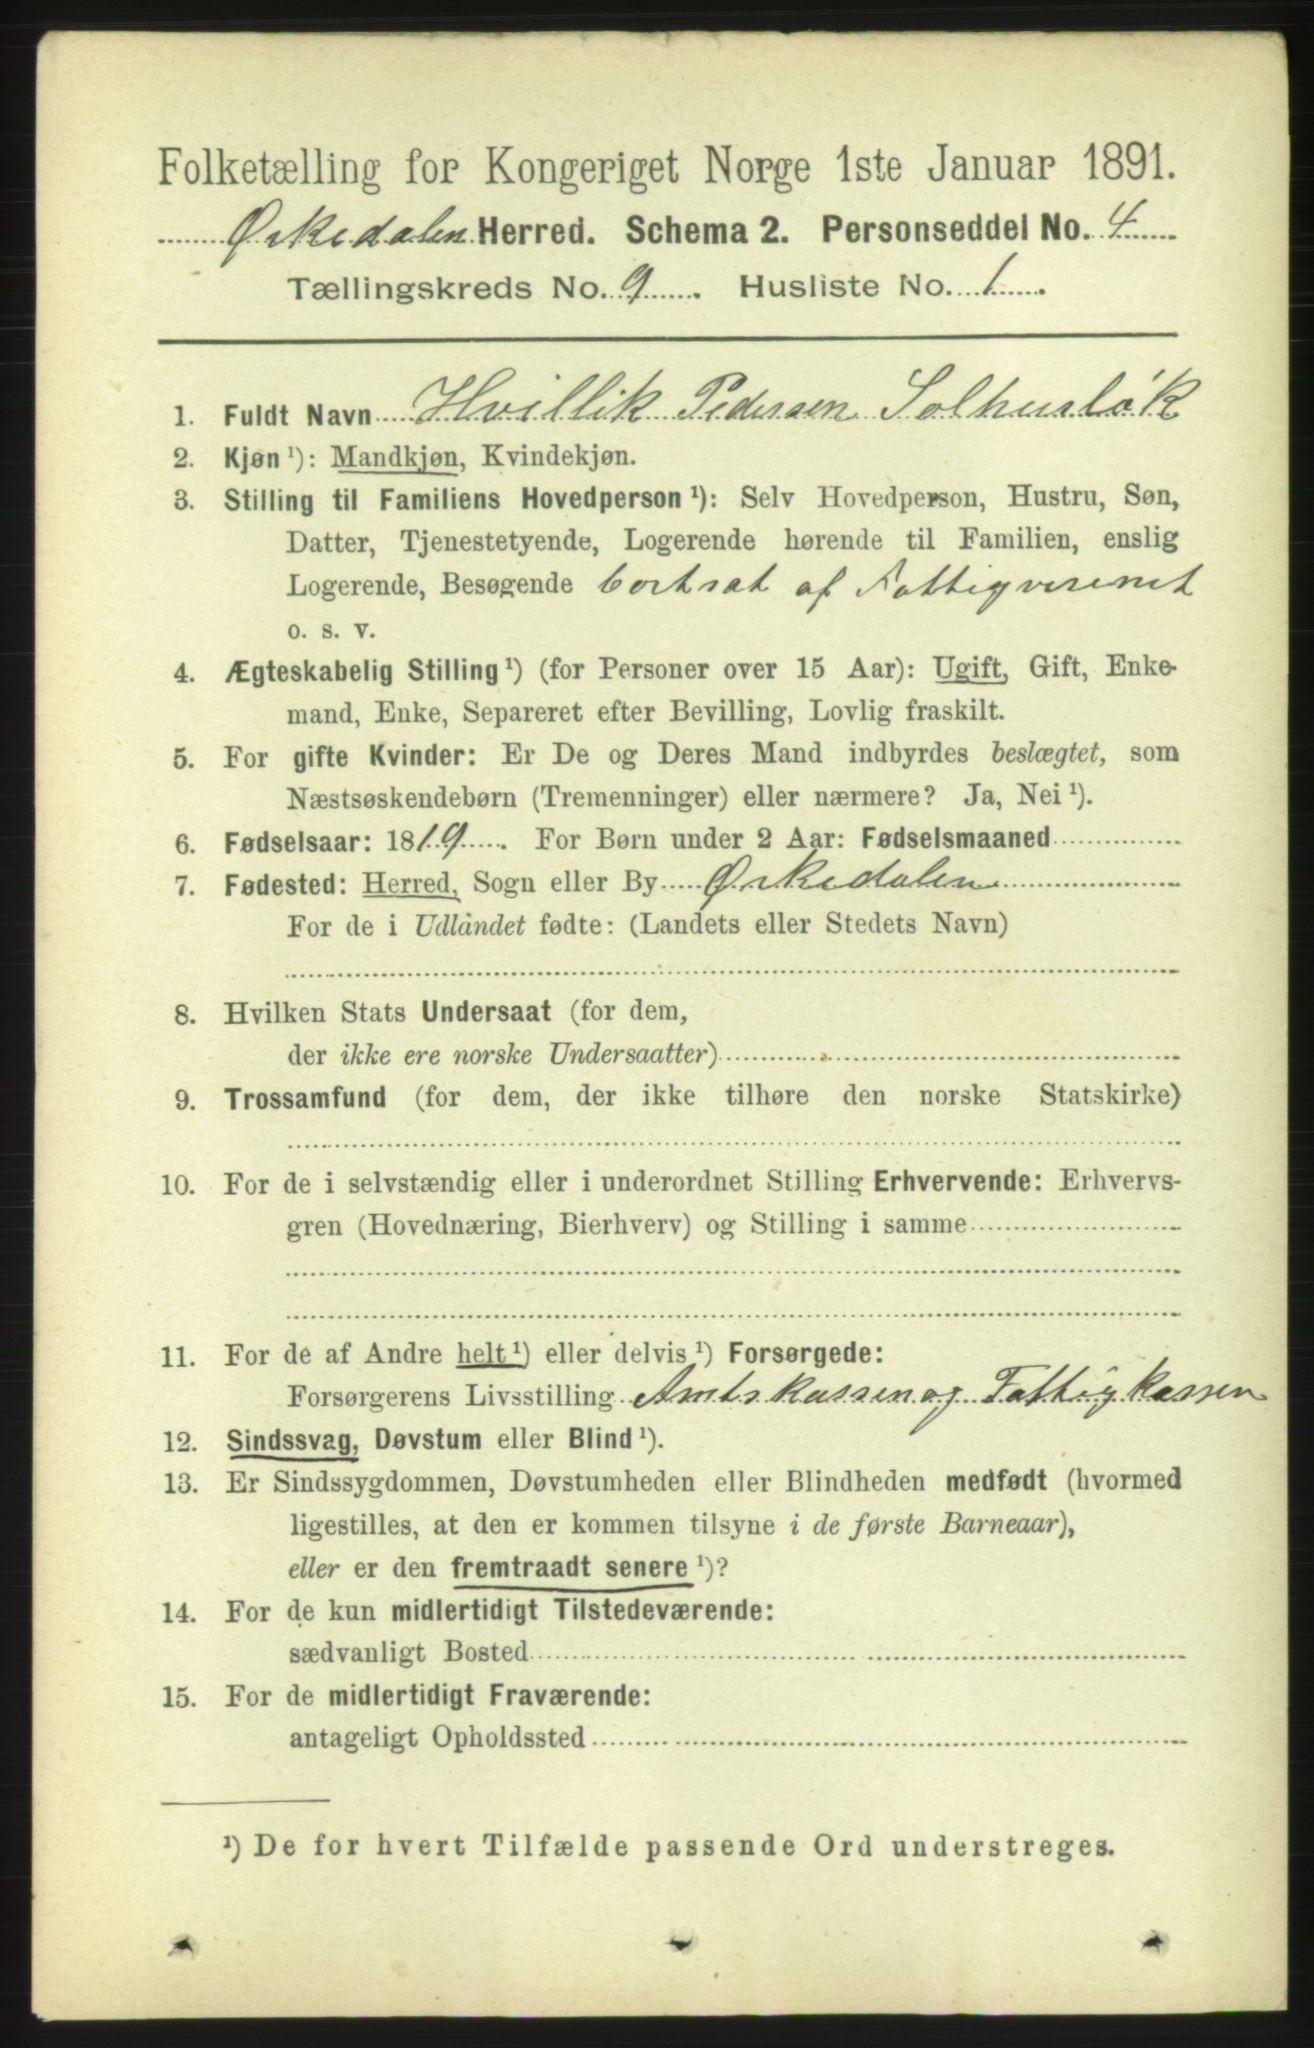 Folketælling for Kongeriget Norge 1ste Januar 1891.
Ørkedalen Herred. Schema 2. Personseddel No. 4
Tællingskreds No. 9. Husliste No. 1.
1. Fuldt Navn Hvillik Pedersen Solhusløk
2. Kjøn ¹): Mandkjøn, Kvindekjøn.
3. Stilling til Familiens Hovedperson ¹): Selv Hovedperson, Hustru, Søn,
Datter, Tjenestetyende, Logerende hørende til Familien, enslig
Logerende, Besøgende bortsat af Fattigvesenet
o. s. v.
4. Ægteskabelig Stilling ¹) (for Personer over 15 Aar): Ugift, Gift, Enke-
mand, Enke, Separeret efter Bevilling, Lovlig fraskilt.
5. For gifte Kvinder: Er De og Deres Mand indbyrdes beslægtet, som
Næstsøskendebørn (Tremenninger) eller nærmere? Ja, Nei ¹).
6. Fødselsaar: 1819. For Børn under 2 Aar: Fødselsmaaned
7. Fødested: Herred, Sogn eller By Ørkedalen
For de i Udlandet fødte: (Landets eller Stedets Navn)
8. Hvilken Stats Undersaat (for dem,
der ikke ere norske Undersaatter)
9. Trossamfund (for dem, der ikke tilhøre den norske Statskirke)
10. For de i selvstændig eller i underordnet Stilling Erhvervende: Erhvervs-
gren (Hovednæring, Bierhverv) og Stilling i samme
11. For de af Andre helt ¹) eller delvis ¹) Forsørgede:
Forsørgerens Livsstilling Amtskassen og Fattigkassen
12. Sindssvag, Døvstum eller Blind ¹).
13. Er Sindssygdommen, Døvstumheden eller Blindheden medfødt (hvormed
ligestilles, at den er kommen tilsyne i de første Barneaar),
eller er den fremtraadt senere ¹)?
14. For de kun midlertidigt Tilstedeværende:
sædvanligt Bosted
15. For de midlertidigt Fraværende:
antageligt Opholdssted
¹) De for hvert Tilfælde passende Ord understreges.